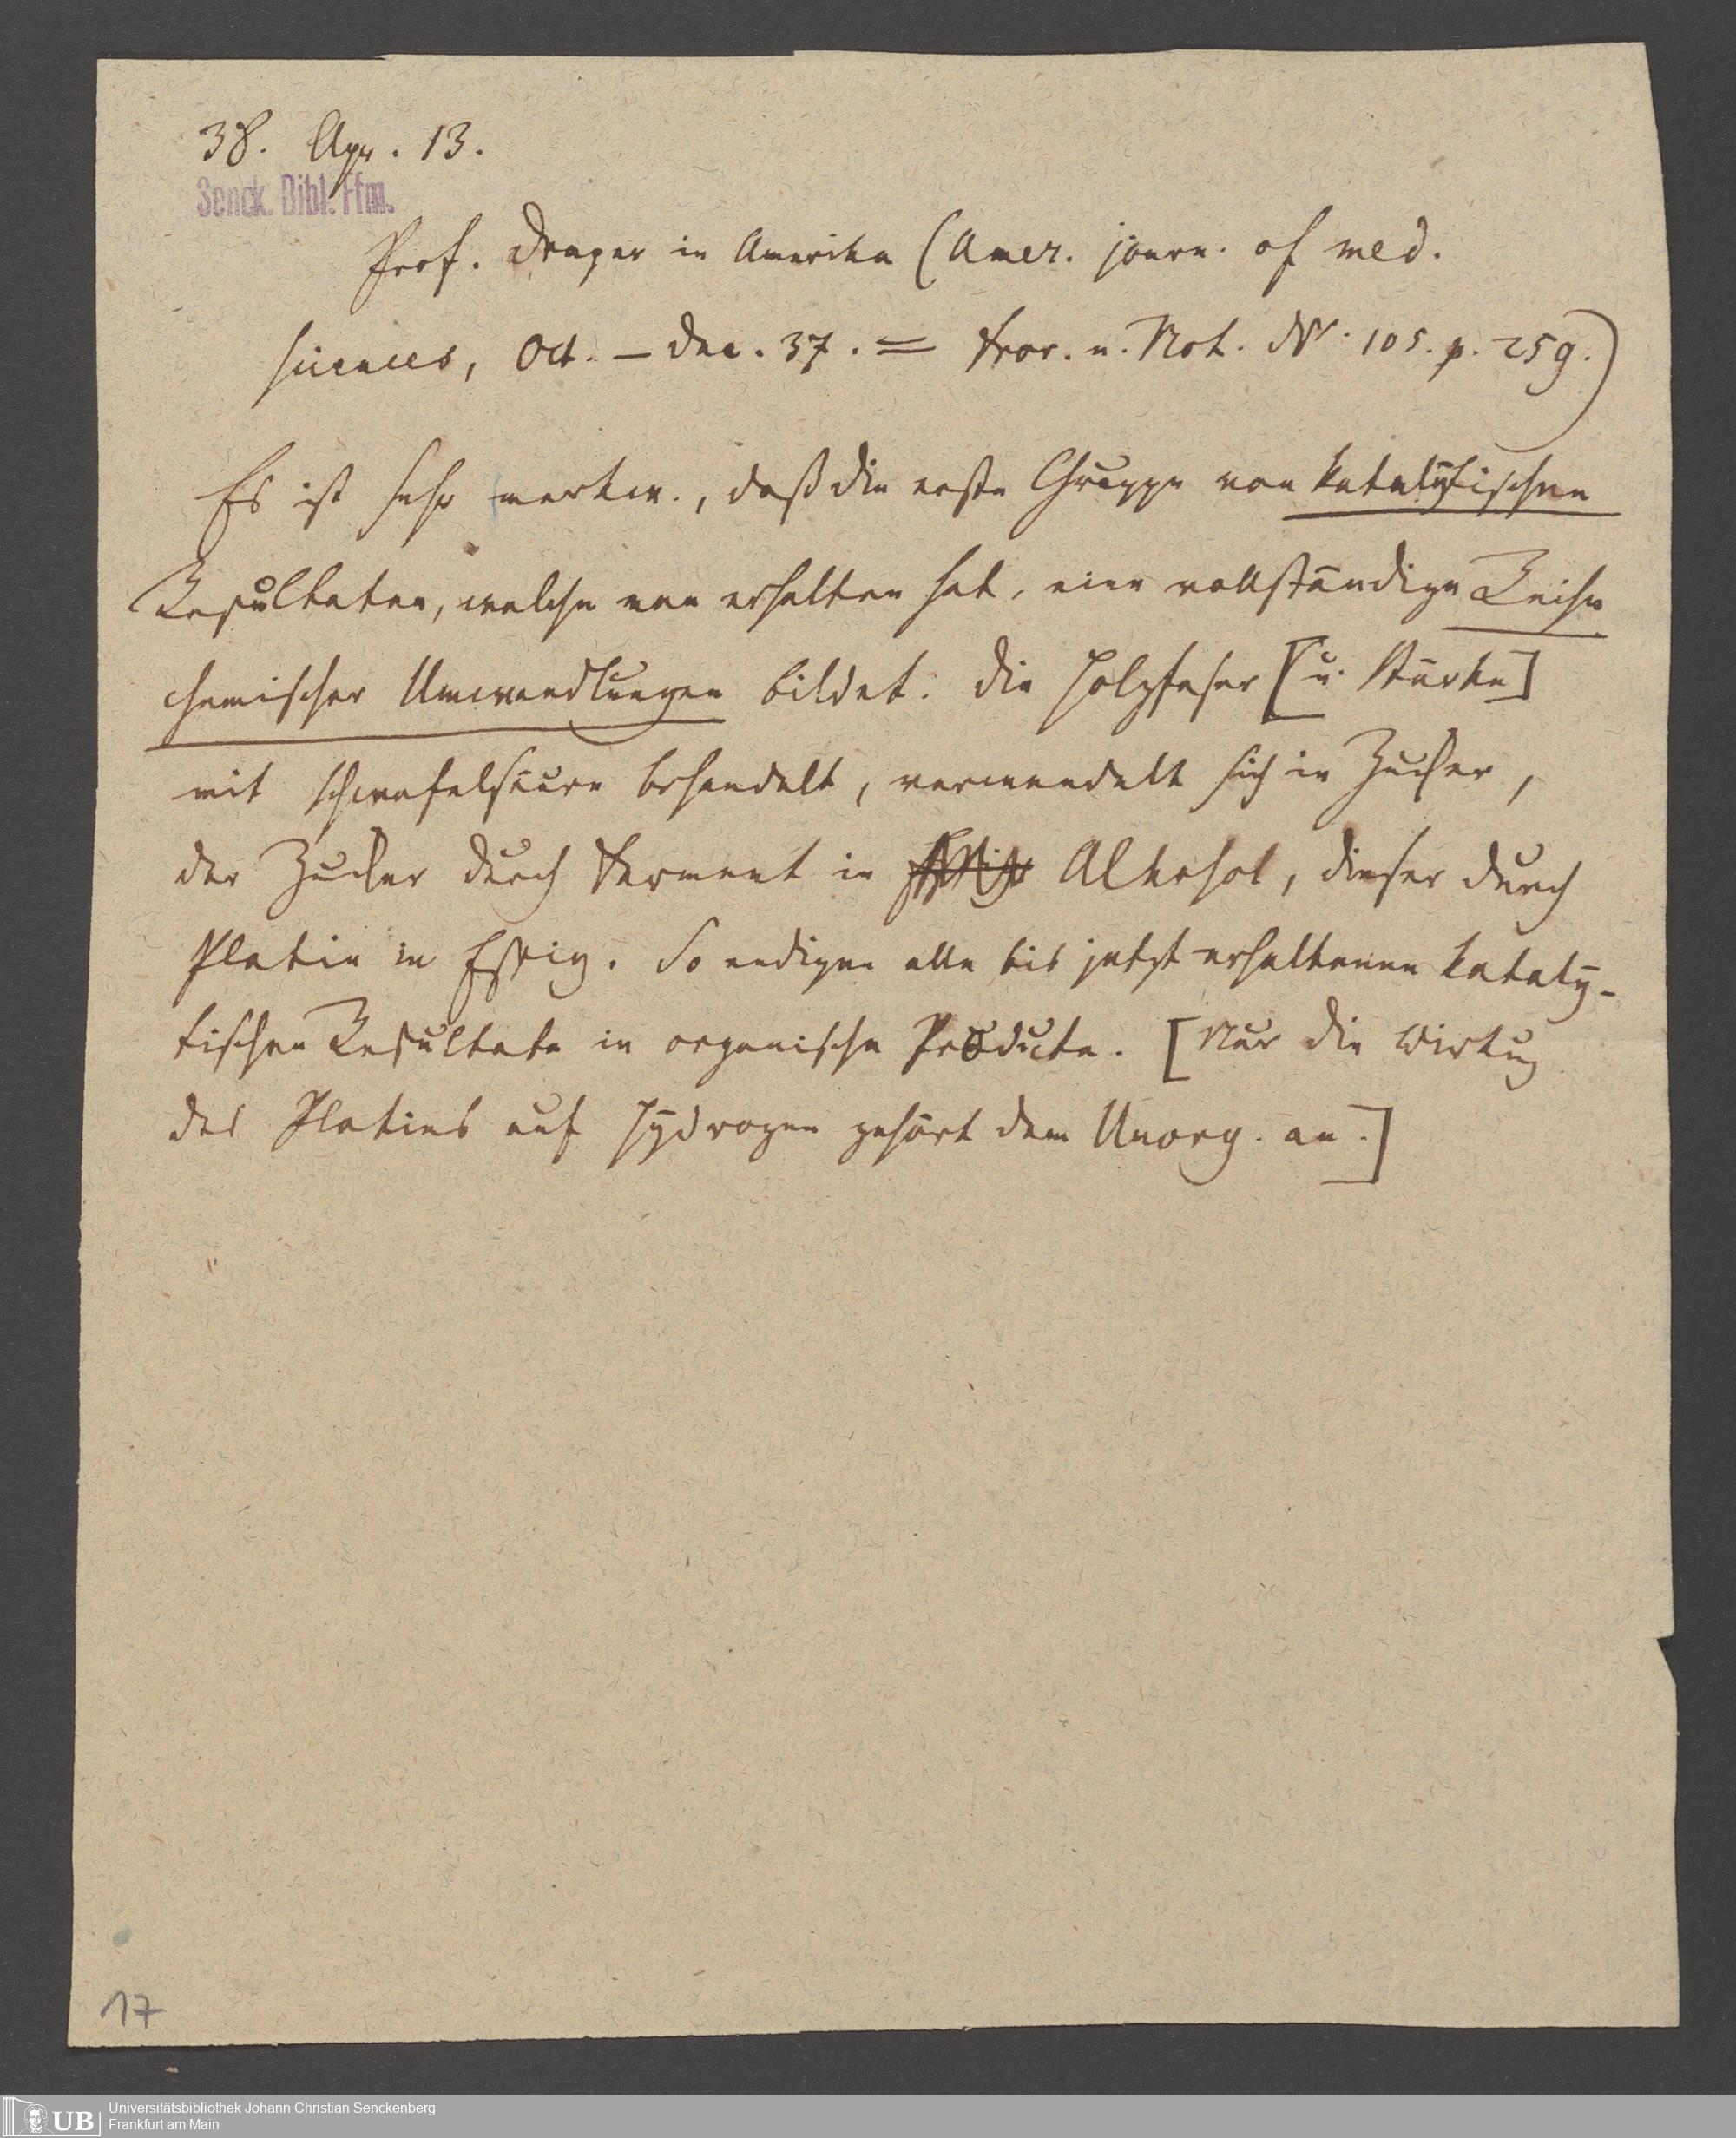 38. Apr. 13.
Senck. Bibl. Ffm.
Prof. Draper in Amerika (Amer. journ. of med.
sciences, Oct. – Dec. 37. = Fror. n. Not. Nr. 105. p. 259.)
Es ist sehr merkw., daß die erste Gruppe von katalytischen
Resultaten, welche man erhalten hat, eine vollständige Reihe
chemischer Umwandlungen bildet. Die Holzfaser [u. Stärke]
mit Schwefelsäure behandelt, verwandelt sich in Zucker,
der Zucker durch Ferment in Alkohol, dieser durch
Platin in Essig. So endigen alle bis jetzt erhaltenen kataly-
tischen Resultate in organische Producte. [Nur die Wirkung
des Platins auf Hydrogen gehört dem Unorg. an.]
17
UB
Universitätsbibliothek Johann Christian Senckenberg
Frankfurt am Main